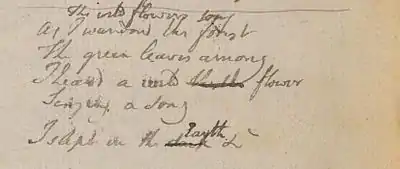 The wild flowers song
As I wanderd the forest
The green leaves among
I heard a wild thistle flower
Singing a song
I slept in the dark Earth